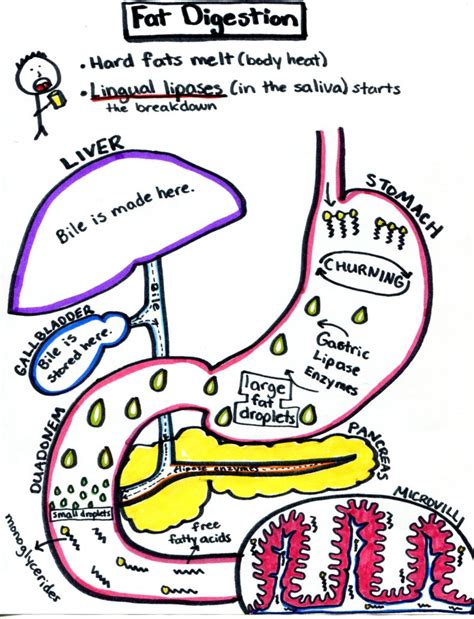 Fat Digestion
• Hard fats melt (body heat)
• Lingual lipases (in the saliva) starts
the breakdown
LIVER
Bile is made here.
STOMACH
CHURNING
Bile
GALLBLADDER
Bile is
stored here.
Gastric
Lipase
Enzymes
large
fat
droplets
DUADONEM
PANCREAS
lipase enzymes
small droplets
MICROVILLI
monoglycerides
free
fatty acids